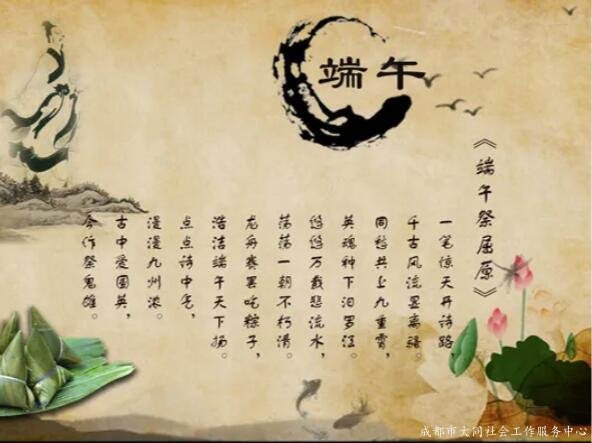 端午
《端午祭屈原》
一笔惊天开诗路，
千古风流墨离骚。
同愁共上九重霄，
英魂种下汨罗江。
悠悠万载悲流水，
荡荡一朝不朽清。
龙舟赛罢吃粽子，
浩洁端午天下扬。
点点诗中气，
漫漫九州浓。
古中爱国英，
今作祭鬼雄。
成都市大同社会工作服务中心